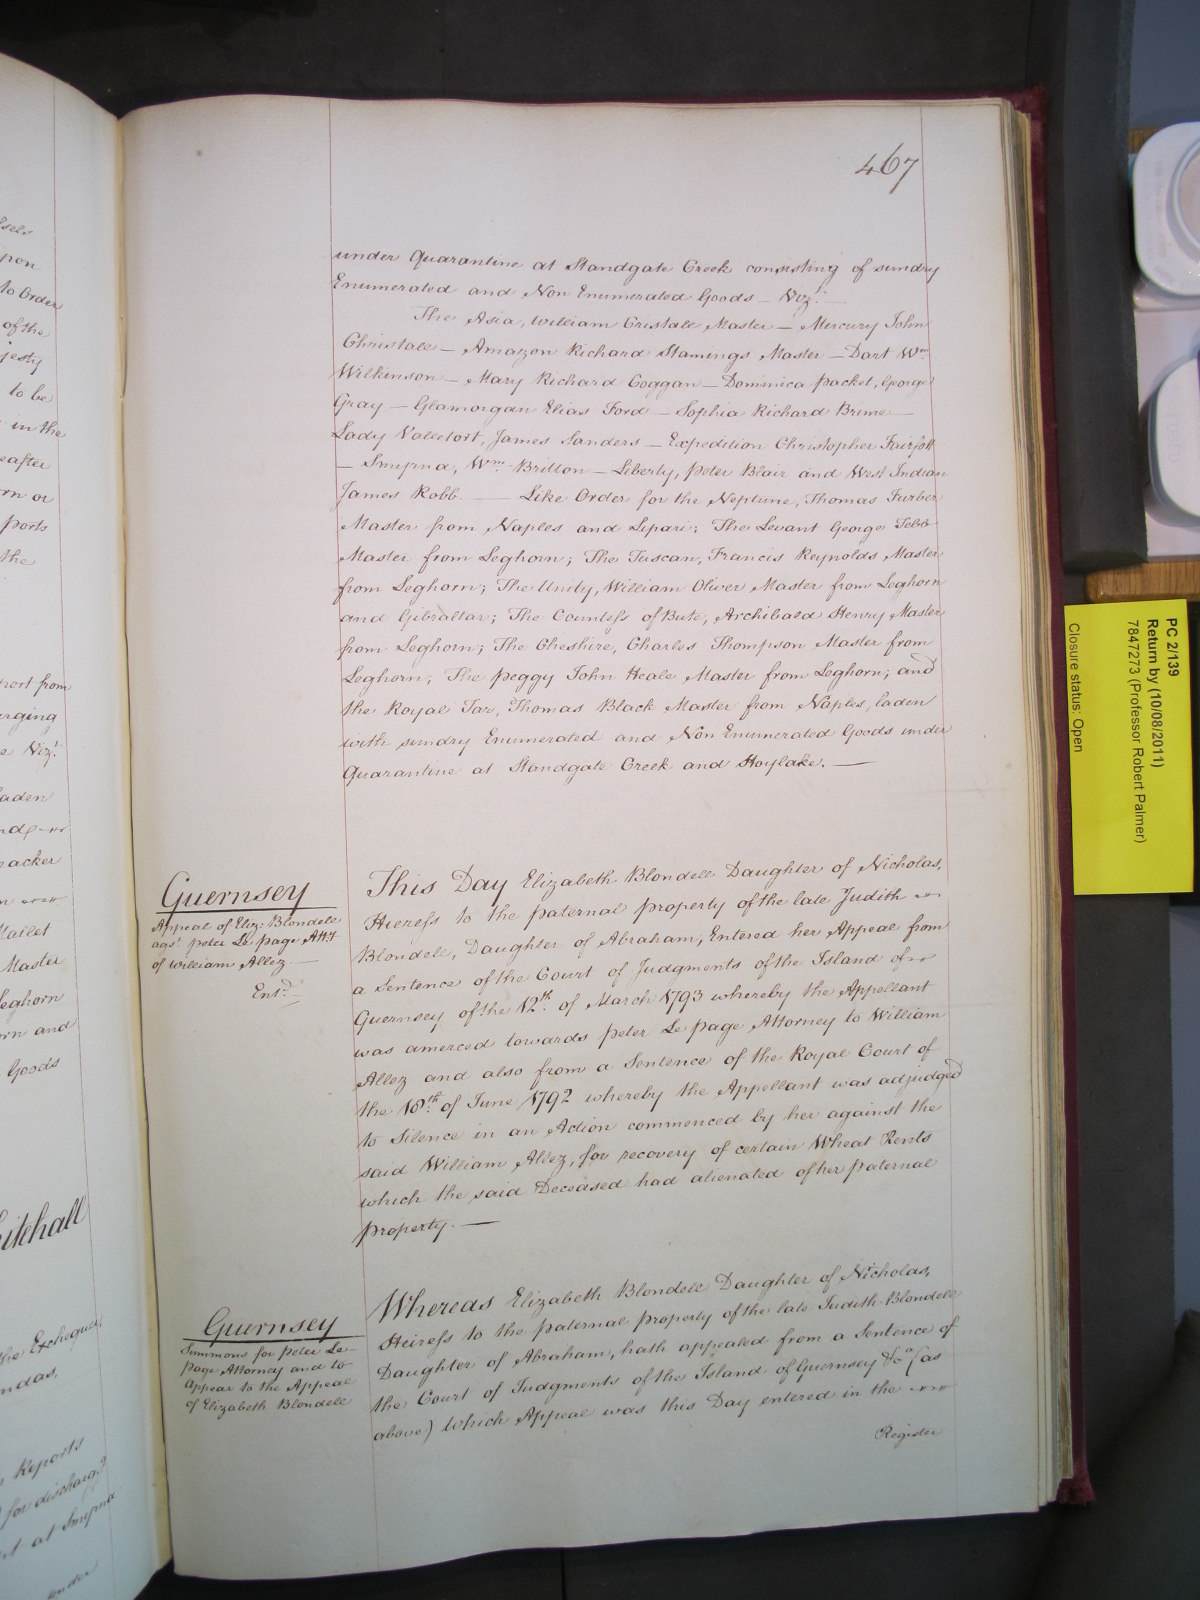 467
under Quarantine at Standgate Creek consisting of sundry
Enumerated and Non Enumerated Goods _ Vizt.
The Asia, William Cristale Master — Mercury John
Christale — Amazon Richard Stamings Master — Dart Wm
Wilkinson — Mary Richard Coggan — Dominica packet, George
Gray — Glamorgan Elias Ford — Sophia Richard Brime —
Lady Valletort, James Sanders — Expedition Christopher Fairfott
— Smyrna, Wm. Britton — Liberty, peter Blair and West Indian
James Robb. — Like Order for the Neptune, Thomas Furber
Master from Naples and Lepari; The Levant George Tebb
Master from Leghorn; The Tuscan, Francis Reynolds Master
from Leghorn; The Unity, William Oliver Master from Leghorn
and Gibraltar; The Countess of Bute, Archibald Henry Master
from Leghorn; The Cheshire, Charles Thompson Master from
Leghorn; The peggy John Heale Master from Leghorn; and
the Royal Tar, Thomas Black Master from Naples, laden
with sundry Enumerated and Non Enumerated Goods under
Quarantine at Standgate Creek and Hoylake. —
Guernsey
Appeal of Eliz: Blondele
agst. peter Le page Atty
of William Allez —
Entd.
This Day Elizabeth Blondele Daughter of Nicholas,
Heiress to the paternal property of the late Judith
Blondele, Daughter of Abraham, Entered her Appeal from
a Sentence of the Court of Judgments of the Island of
Guernsey of the 12th. of March 1793 whereby the Appellant
was amerced towards peter Le page Attorney to William
Allez and also from a Sentence of the Royal Court of
the 18th. of June 1792 whereby the Appellant was adjudged
to Silence in an Action commenced by her against the
said William Allez, for recovery of certain Wheat Rents
which the said Deceased had alienated of her paternal
property. —
Guernsey
Summons for peter Le
page Attorney and to
Appear to the Appeal
of Elizabeth Blondele
Whereas Elizabeth Blondele Daughter of Nicholas,
Heiress to the paternal property of the late Judith Blondele
Daughter of Abraham, hath appealed from a Sentence of
the Court of Judgments of the Island of Guernsey &ca (as
above) which Appeal was this Day entered in the
Register
PC 2/139
Return by (10/08/2011)
7847273 (Professor Robert Palmer)
Closure status: Open
upon
to Order
of the
jesty
to be
in the
eafter
rn or
ports
the
port from
erging
e Vizt
laden
acker
Mallet
Master
Leghorn
orn and
Goods
hitehall
the Exchequer,
ndas,
Reports
for discharg'd
at Smyrna
under